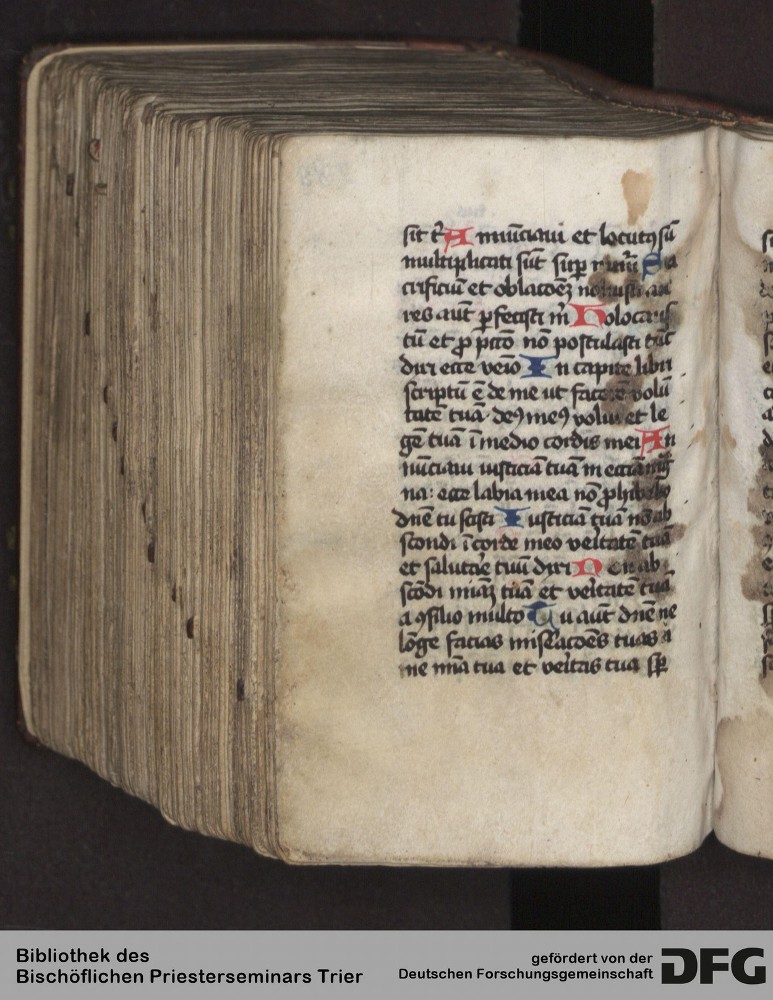 sit t̄ Annūciaui et locutꝯ sū
multiplicati sūt suꝑ Sa
crificiū et oblacōeꝫ noluisti au
res aūt ꝑfecisti m̄ Holocaus
tū et ꝓ pctō nō postulasti tūc
dixi ecce veīo In capite libri
scriptū ē de me ut facerē volū
tatē tuā deꝯ meꝯ volui et le
gē tuā ī medio cordis mei An
nūciaui iusticiā tuā in ecciā
na: ecce labia mea nō ꝓhibebo
dnē tu scisti Iusticiā tuā nō ab
scondi ī corde meo veritatē tuā
et salutāe tuū dixi Non ab
scōdi miāꝫ tuā et veritatē tuā
a ꝯsilio multo Tu aūt dnē ne
lōge facias misēacōes tuas a
me mīa tua et veritas tua sꝑ
Bibliothek des
Bischöflichen Priesterseminars Trier
gefördert von der
Deutschen Forschungsgemeinschaft
DFG